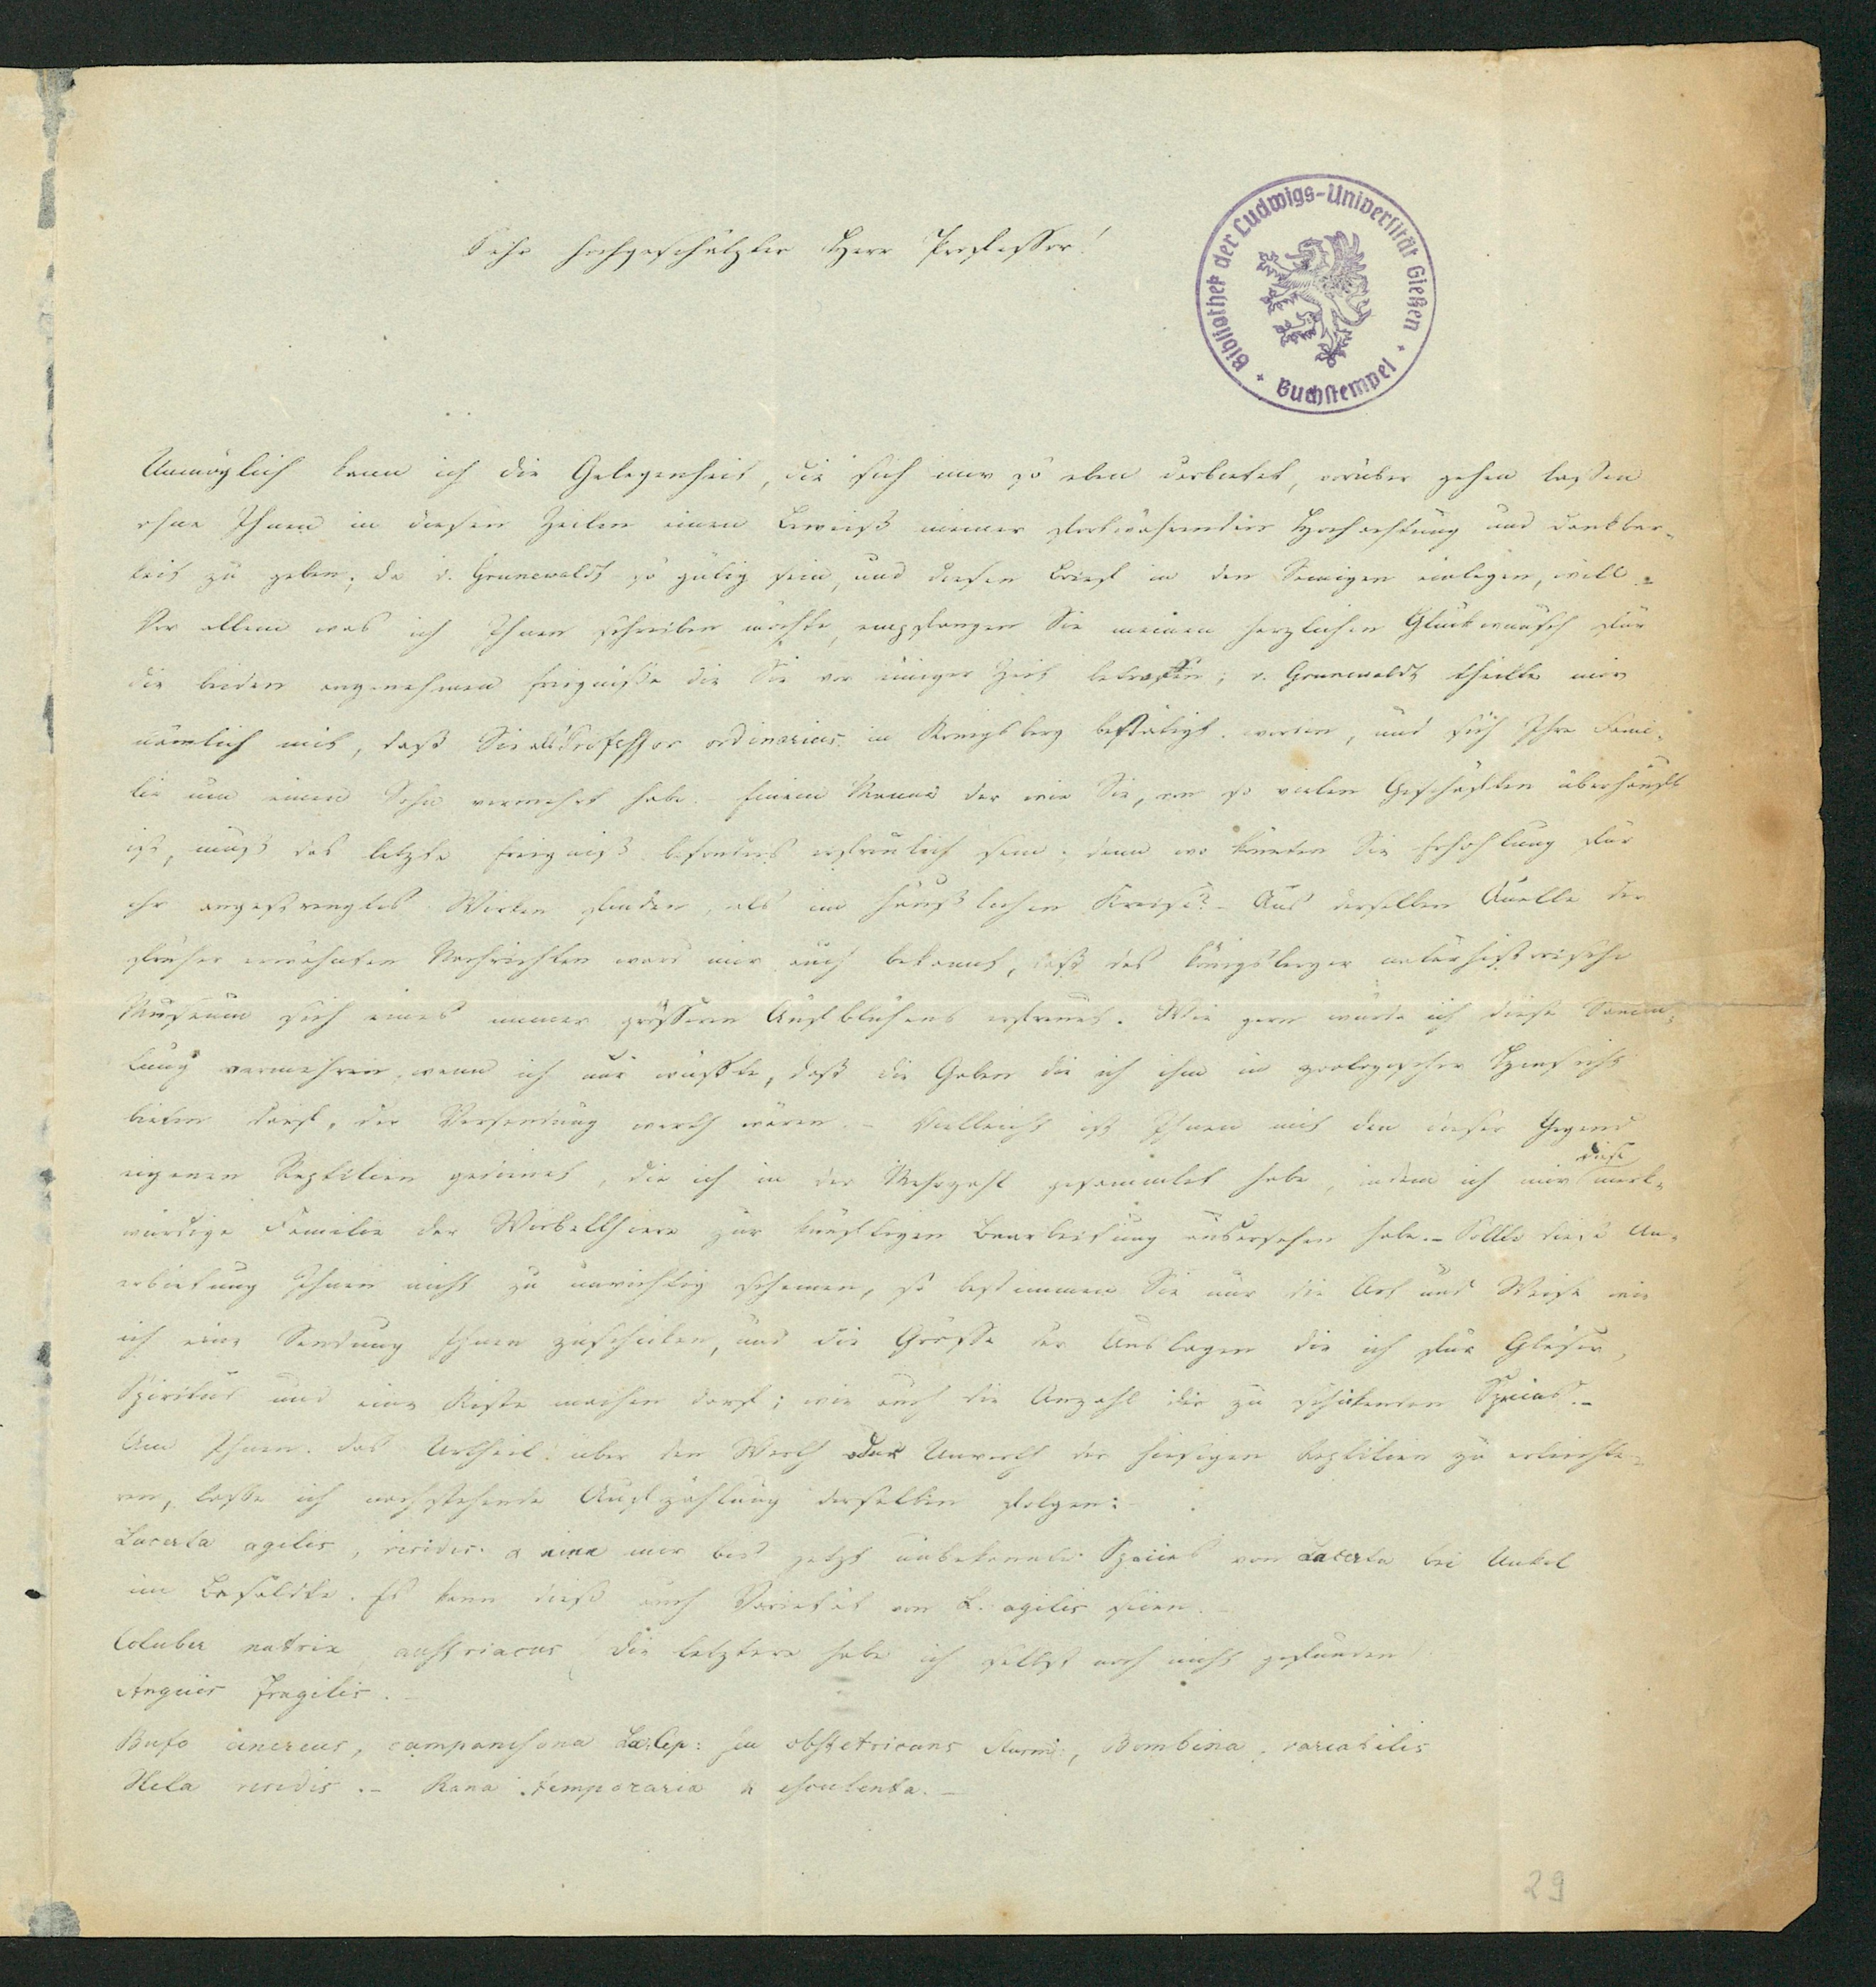 Sehr hochgeschätzter Herr Professor!
Bibliothek der Ludwigs-Universität Gießen
Buchstempel
Unmöglich kann ich die Gelegenheit, die sich mir so eben darbietet, vorüber gehen lassen
ohne Ihnen in diesen Zeilen einen Beweiß meiner fortwährenden Hochachtung und Dankbar-
keit zu geben, da v. Grunewaldt so gütig sein, und diesen Brief in den Seinigen einlegen, will.-
Vor allem was ich Ihnen schreiben möchte, empfangen Sie meinen herzlichen Glückwunsch für
die beiden angenehmen Ereignisse die Sie vor einiger Zeit betrafen; v. Grunewaldt theilte mir
nämlich mit, daß Sie als Professor ordinarius in Königsberg bestätigt worden, und sich Ihre Fami-
lie um einen Sohn vermehrt habe. Einem Manne der wie Sie, von so vielen Geschäften überhäuft
ist, muß das letzte Ereigniß besonders erfreulich sein; denn wo könnten Sie Erhohlung für
ihr angestrengtes Wirken finden, als im häußlichen Kreise?- Aus derselben Quelle der
früher erwähnten Nachrichten ward mir auch bekannt, daß das Königsberger naturhistorische
Museum sich eines immer größeren Aufblühens erfreuet. Wie gern würde ich diese Samm-
lung vermehren, wenn ich nur wüßte, daß die Gaben die ich ihm in zoologischer Hinsicht
bieten darf, der Versendung werth wären.- Vielleicht ist Ihnen mit den dieser Gegend
eigenen Reptilien gedienet, die ich in der Mehrzahl gesammlet habe, indem ich mir diese merk-
würdige Familie der Wirbelthiere zur künftigen Bearbeitung ausersehen habe.- Sollte diese An-
erbietung Ihnen nicht zu unwichtig scheinen, so bestimmen Sie nur die Art und Weise wie
ich eine Sendung Ihnen zuschicken, und die Größe der Auslagen die ich für Gläser,
Spiritus und eine Kiste machen darf; wie auch die Anzahl der zu schickenden Species.-
Um Ihnen das Urtheil über den Werth oder Unwerth der hiesigen Reptilien zu erleichte-
ren, lasse ich nachstehende Aufzählung derselben folgen:
Lacerta agilis, viridis & eine mir bis jetzt unbekannte Species von Lacerta bei Unkel
im Basaldte. Es kann dieß auch Varietät von L. agilis seien.
Coluber natrix austriacus (die letztere habe ich selbst noch nicht gefunden)
Anguis fragilis.
Bufo cinereus, campanisona Lacép: seu obstetricans Sturmi, Bombina, variabilis
Hila viridis.- Rana temporaria & esculenta.-
29